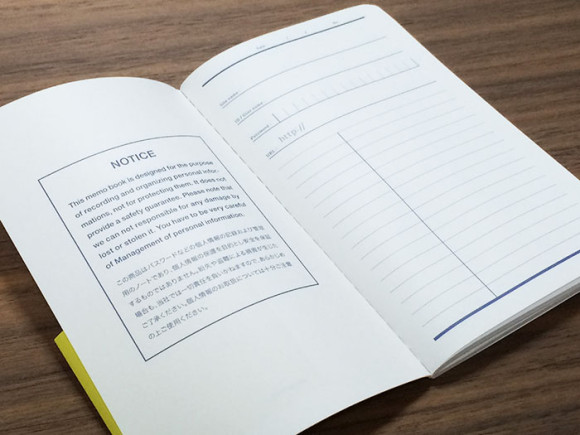 NOTICE
This memo book is designed for the purpose
of recording and organizing personal infor-
mations, not for protecting them. It does not
provide a safety guarantee. Please note that
we can not responsible for any damage by
lost or stolen it. You have to be very careful
of Management of personal information.
この商品はパスワードなどの個人情報の記録および整理
用のノートであり、個人情報の保護を目的とし安全を保証
するものではありません。紛失や盗難による損害が生じた
場合も、当社では一切責任を負いかねますので、あらかじめ
ご了承ください。個人情報のお取扱については十分ご注意
の上ご使用ください。
http://